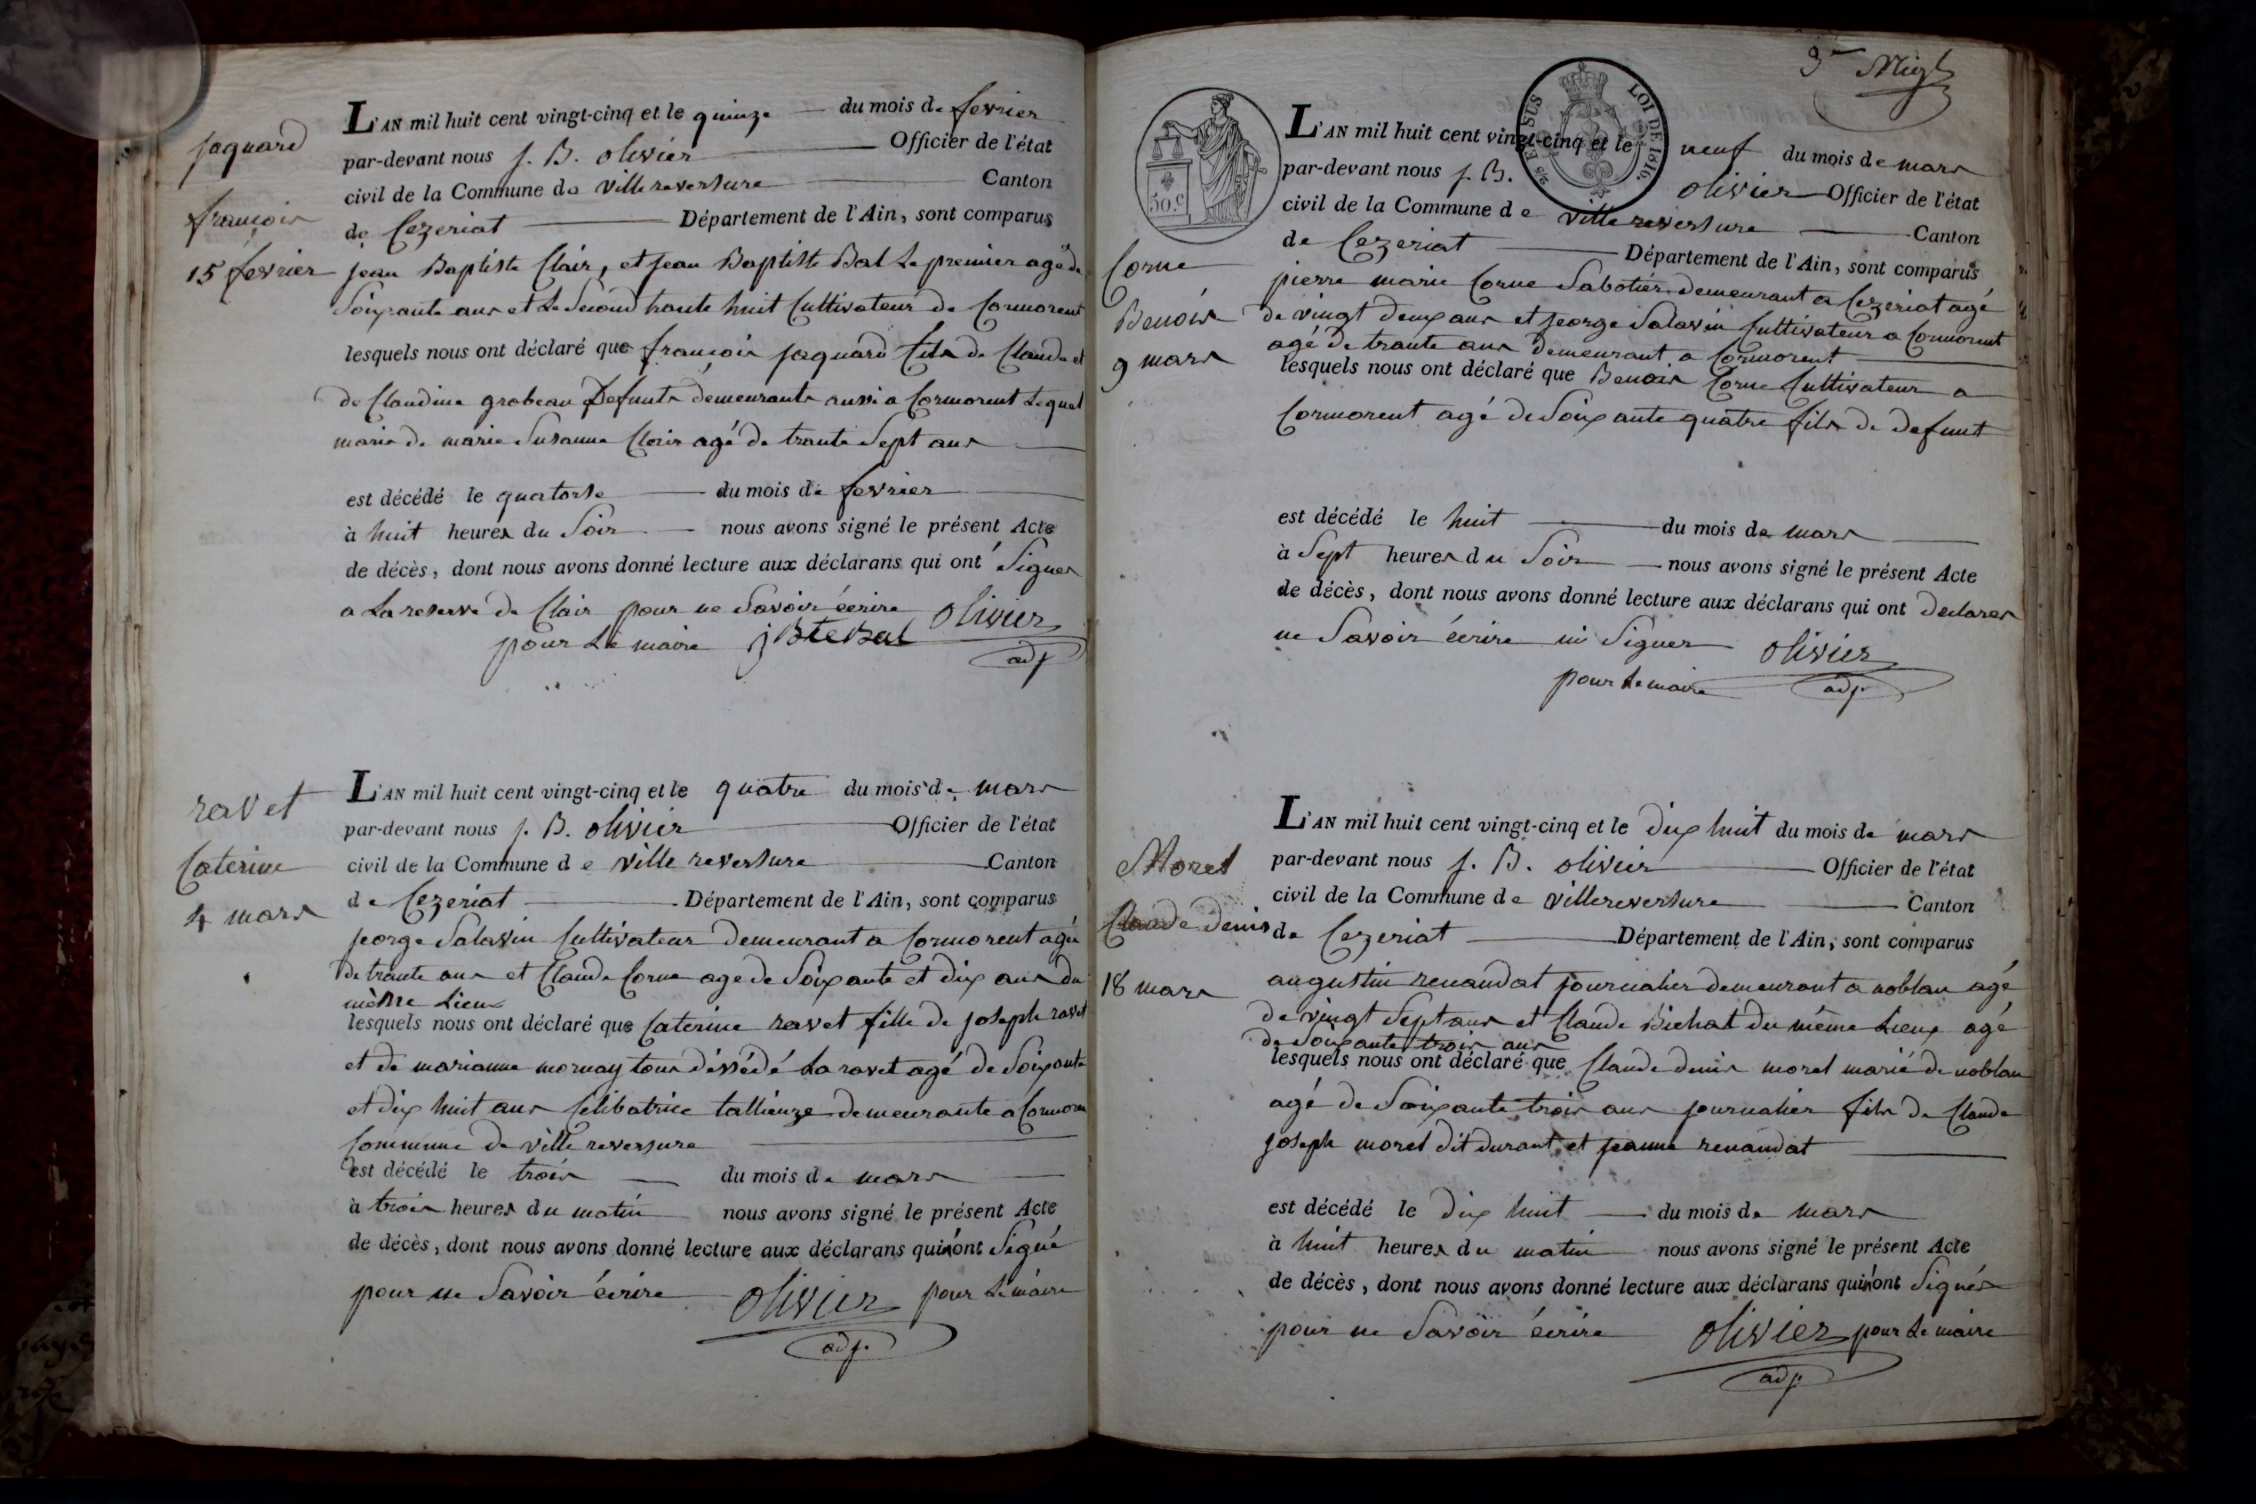 jaquard
françois
15 fevrier
L'AN mil huit cent vingt-cinq et le quinze du mois de fevrier
par-devant nous j. B. olivier Officier de l'état
civil de la Commune de villereversure Canton
de Cezeriat Département de l'Ain, sont comparus
jean Baptiste Clair, et jean Baptiste Bal Le premier agé de
Soixante ans et Le Second trante huit Cultivateur de Cormorent
lesquels nous ont déclaré que françois jaquard fils de Claude et
de Claudine grobeau Defunts demeurants aussi a Cormorent Lequel
marié de marie Susanne Clair agé de trante Sept ans
est décédé le quatorse du mois de fevrier
à huit heures du Soir nous avons signé le présent Acte
de décès, dont nous avons donné lecture aux déclarans qui ont Signer
a La reserve de Clair pour ne Savoir écrire olivier
pour Le maire jBteBal adj
ravet
Caterine
4 mars
L'AN mil huit cent vingt-cinq et le quatre du mois de mars
par-devant nous j. B. olivier Officier de l'état
civil de la Commune de ville reversure Canton
de Cezeriat Département de l'Ain, sont comparus
jeorge Salavin Cultivateur demeurant a Cormorent agée
de trante ans et Claude Corne age de Soixante et dix ans du
même Lieux
lesquels nous ont déclaré que Caterine ravet fille de joseph ravet
et de marianne mornay tous déssédé La ravet agé de Soixante
et dix huit ans Célibatrice tallieuze demeurante a Cormoren
Commune de ville reversure
est décédé le trois du mois de mars
à trois heures du matin nous avons signé le présent Acte
de décès, dont nous avons donné lecture aux déclarans qui n'ont Signé
pour ne Savoir écrire olivier pour Le maire
adj.
LOI DE 1816.
50.c
Corne
Benois
9 mars
L'AN mil huit cent vingt-cinq et le neuf du mois de mars
par-devant nous j. B. olivier Officier de l'état
civil de la Commune de ville reversure Canton
de Cezeriat Département de l'Ain, sont comparus
pierre marie Corne Sabotier demeurant a Cezeriat agé
de vingt deux ans et jeorge Salavin Cultivateur a Cormorent
agé de trante ans demeurant a Cormorent
lesquels nous ont déclaré que Benois Corne Cultivateur a
Cormorent agé de Soixante quatre fils de defunt
est décédé le huit du mois de mars
à Sept heures du Soir nous avons signé le présent Acte
de décès, dont nous avons donné lecture aux déclarans qui ont declarer
ne Savoir écrire ni Signer olivier
pour Le maire adj.
Morel
Claude denis
18 mars
L'AN mil huit cent vingt-cinq et le dix huit du mois de mars
par-devant nous j. B. olivier Officier de l'état
civil de la Commune de villereversure Canton
de Cezeriat Département de l'Ain, sont comparus
augustin renaudat journalier demeurant a noblan agé
de vingt Sept ans et Claude Bichat du même Lieux agé
de Soixante trois ans
lesquels nous ont déclaré que Claude denis morel marié de noblan
agé de Soixante trois ans journalier fils de Claude
joseph morel dit durant et jeanne renaudat
est décédé le dix huit du mois de mars
à huit heures du matin nous avons signé le présent Acte
de décès, dont nous avons donné lecture aux déclarans qui n'ont Signés
pour ne Savoir écrire olivier pour Le maire
adj